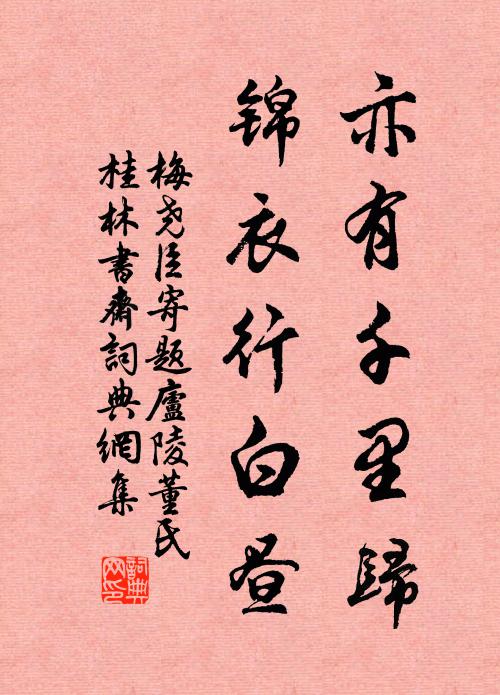 亦有千里歸
锦衣行白昼
梅尧臣寄题廬陵董氏
桂林書齋詞典網集
詞典网印